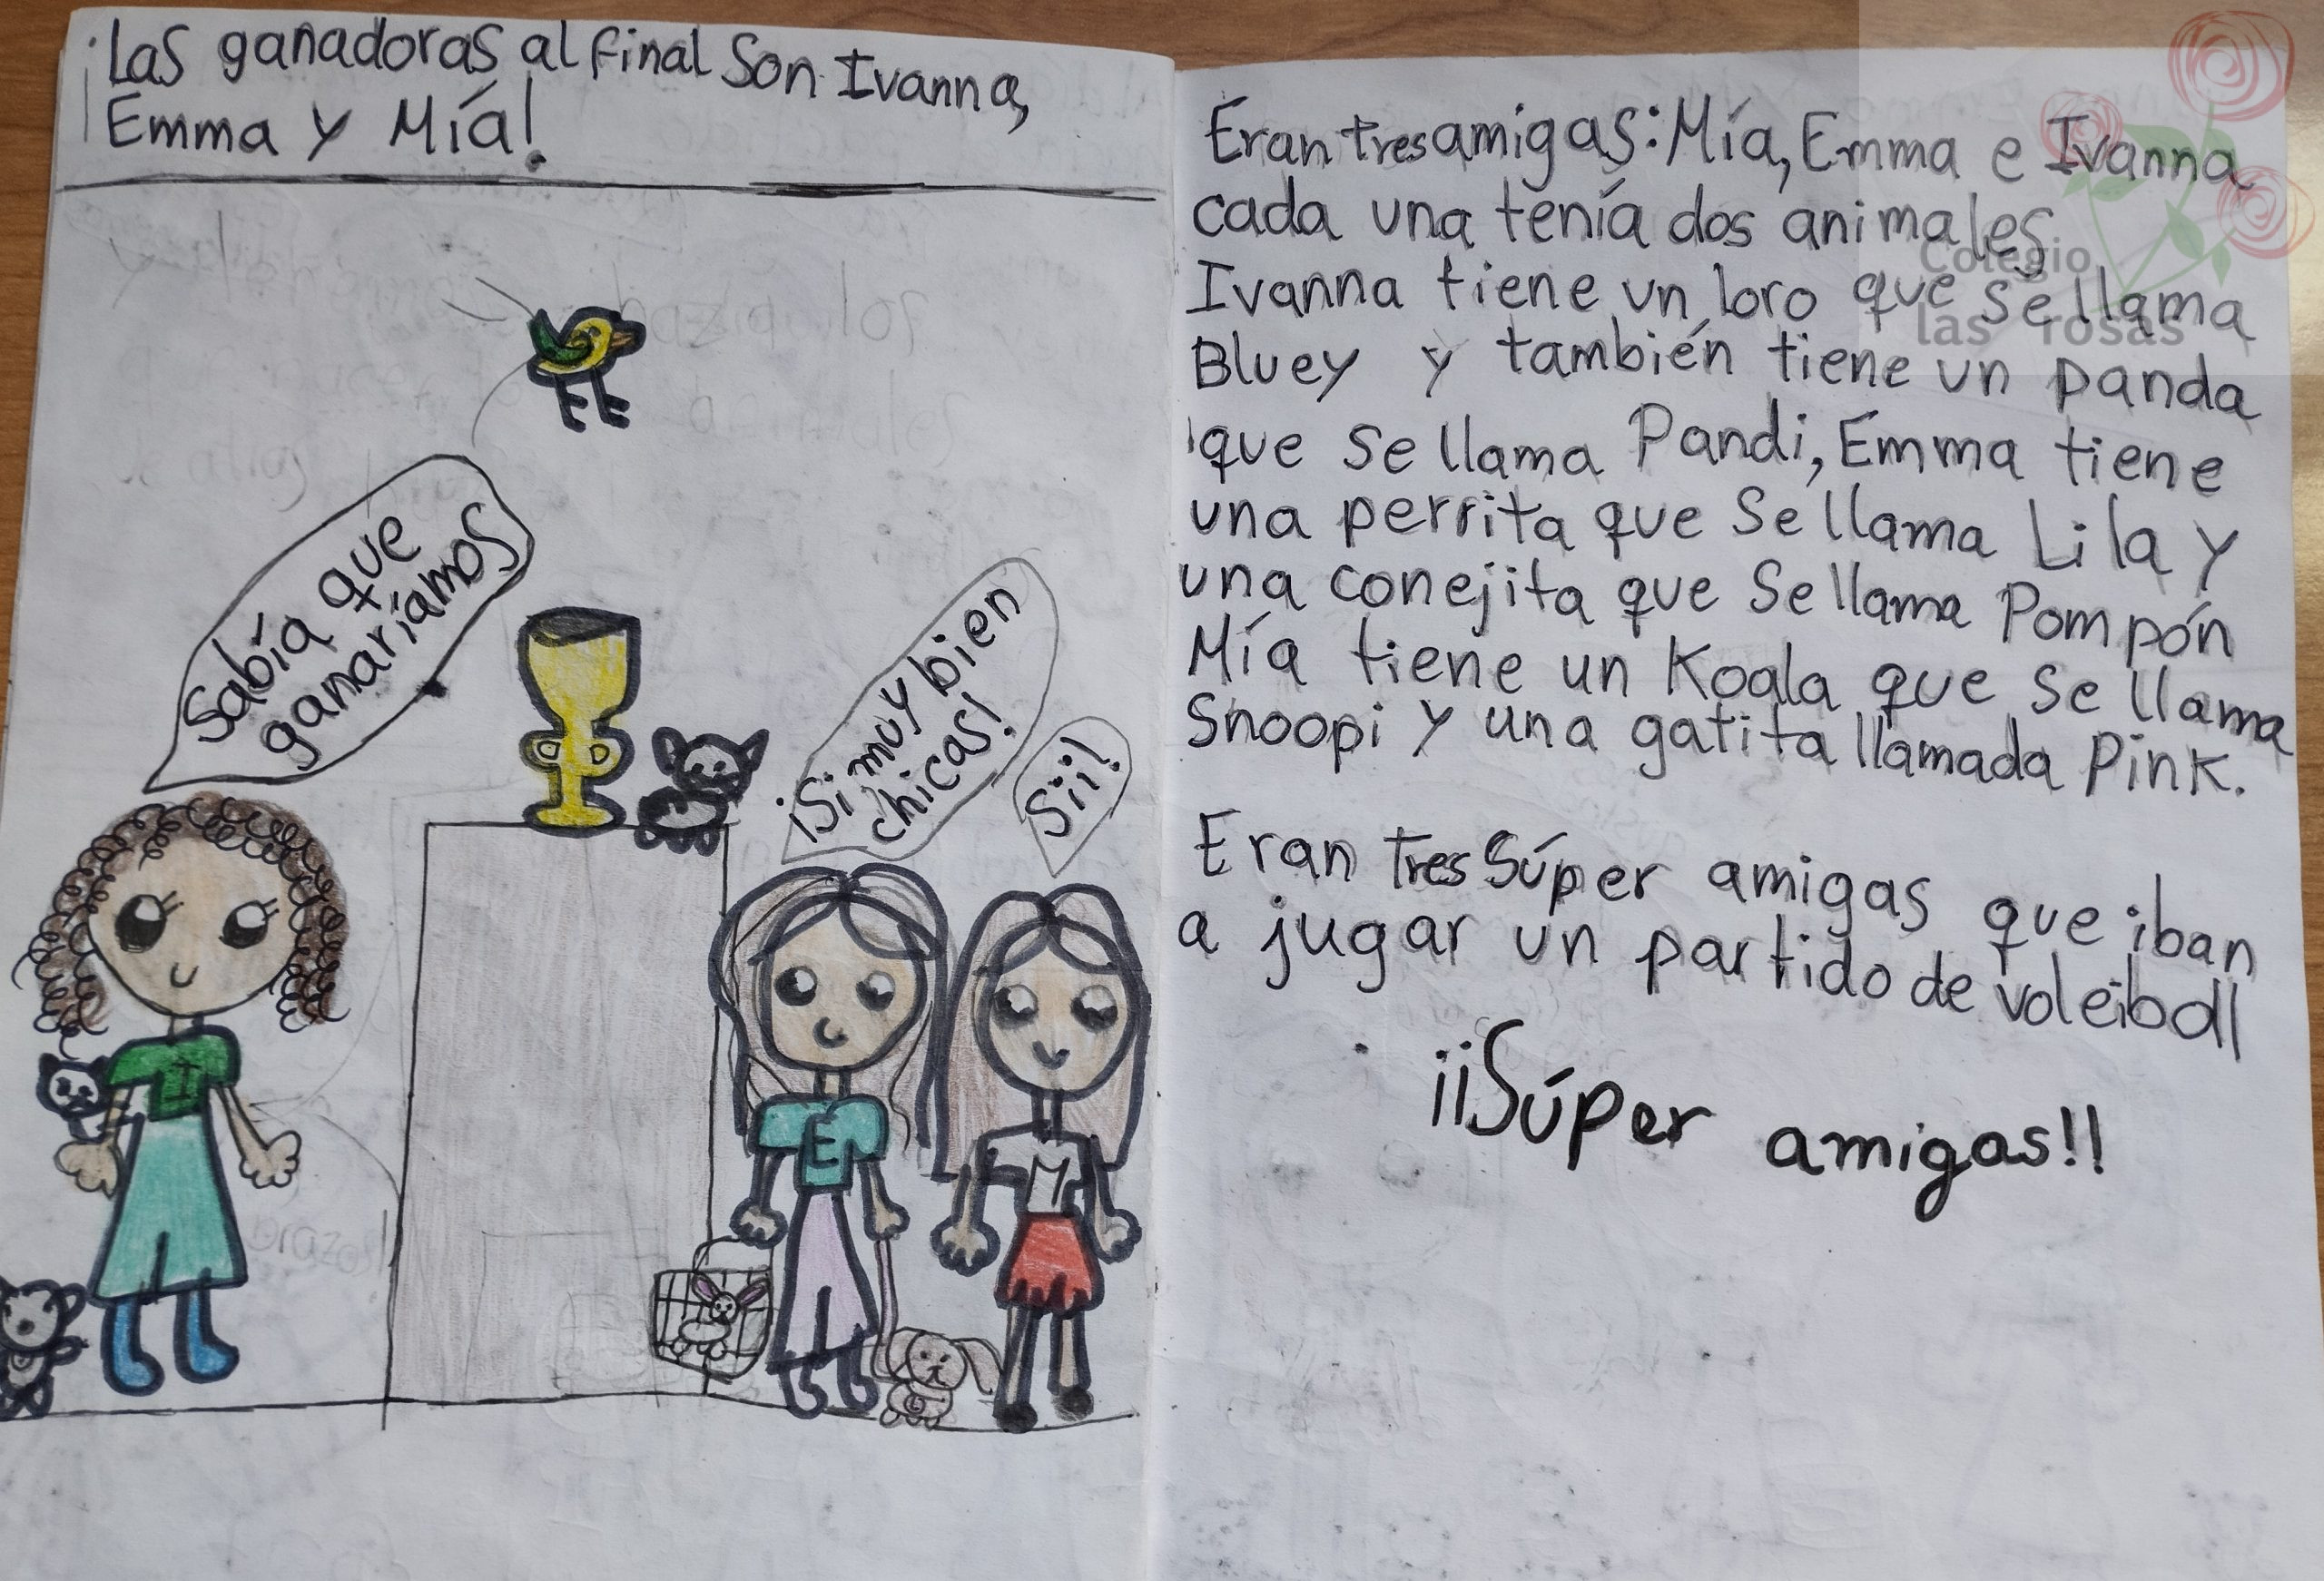 ¡Las ganadoras al final Son Ivanna,
Emma y Mía!
Sabía que
ganaríamos
¡Si muy bien
chicas!
Sii!
I
E
M
Eran tres amigas: Mía, Emma e Ivanna
cada una tenía dos animales
Ivanna tiene un loro que se llama
Bluey y también tiene un panda
que se llama Pandi, Emma tiene
una perrita que se llama Lila y
una conejita que se llama Pompón
Mía tiene un Koala que se llama
Snoopi y una gatita llamada Pink.
Eran tres Súper amigas que iban
a jugar un partido de voleiboll
¡¡Súper amigas!!
Colegio
las rosas